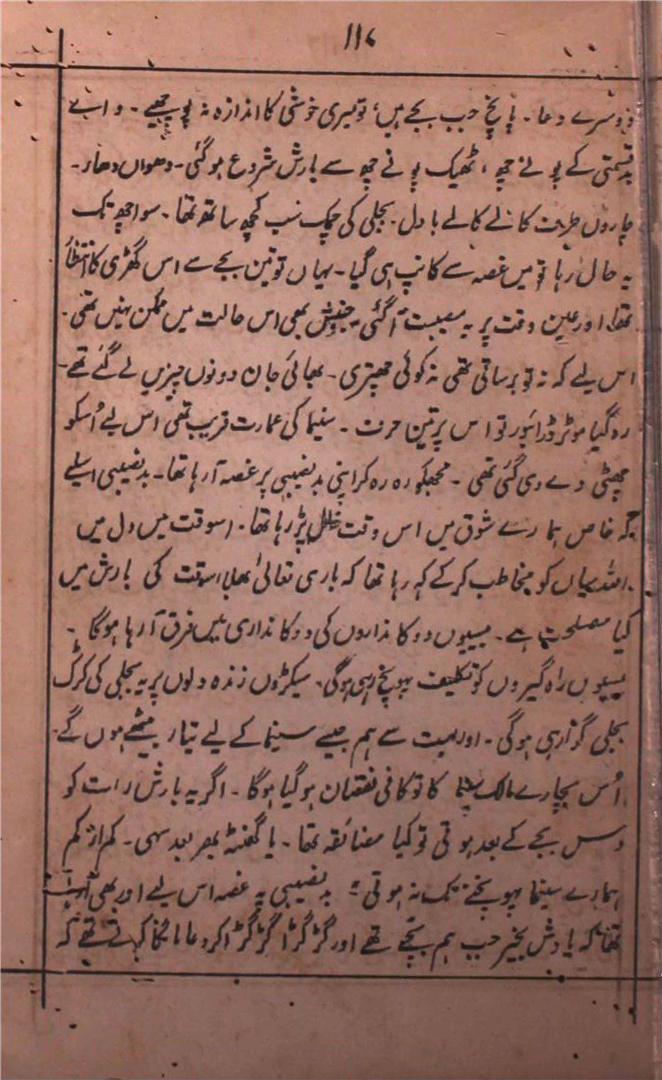 ۱۱۷
دوسرے دعا۔ پانچ جب بجے ہیں، تو میری خوشی کا اندازہ نہ پوچھیے۔ وائے
بدقسمتی کے پونے چھ، ٹھیک پونے چھ سے بارش شروع ہوگئی۔ دھواں دھار۔
چاروں طرف کالے کالے بادل۔ بجلی کی چمک سب کچھ ساتھ تھا۔ سوا چھ تک
یہ حال رہا تو میں غصہ سے کانپ ہی گیا۔ یہاں تو تین بجے سے اس گھڑی کا انتظار
تھا۔ اور عین وقت پر یہ مصیبت آگئی۔ جنبش بھی اس حالت میں ممکن نہیں تھی۔
اس لیے کہ نہ تو برساتی تھی نہ کوئی چھتری۔ بھائی جان دونوں چیزیں لے گئے تھے۔
رہ گیا موٹر ڈرائیور تو اس پر تین حرف۔ سنیما کی عمارت قریب تھی اس لیے اُسکو
چھٹی دے دی گئی تھی۔ مجھکو رہ رہ کر اپنی بدنصیبی پر غصہ آرہا تھا۔ بدنصیبی اسلیے
کہ خاص ہمارے شوق میں اس وقت خلل پڑ رہا تھا۔ اسوقت میں دل میں
اللہ میاں کو مخاطب کرکے کہہ رہا تھا کہ باری تعالیٰ بھلا اسوقت کی بارش میں
کیا مصلحت ہے۔ بیسیوں دوکانداروں کی دوکانداری میں فرق آرہا ہوگا۔
بیسیوں راہ گیروں کو تکلیف پہونچ رہی ہوگی۔ سیکڑوں زندہ دلوں پر یہ بجلی کی کڑک
بجلی گرا رہی ہوگی۔ اور بہت سے ہم جیسے سنیما کے لیے تیار بیٹھے ہوں گے۔
اُس بچارے مالک سنیما کا تو کافی نقصان ہوگیا ہوگا۔ اگر یہ بارش رات کو
دس بجے کے بعد ہوتی تو کیا مضائقہ تھا۔ یا گھنٹہ بھر بعد سہی۔ کم از کم
ہمارے سنیما پہونچنے تک نہ ہوتی؟ بدنصیبی پہ غصہ اس لیے اور بھی آرہا
تھا کہ یادش بخیر جب ہم بچے تھے اور گڑگڑا گڑگڑا کر دعا مانگا کرتے تھے کہ